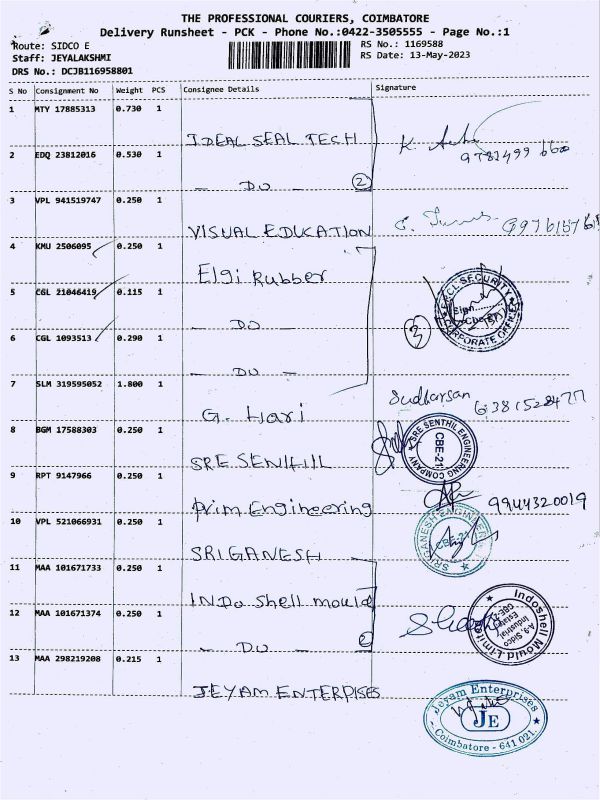 THE PROFESSIONAL COURIERS, COIMBATORE
Delivery Runsheet - PCK - Phone No.:0422-3505555 - Page No.:1
Route: SIDCO E
Staff: JEYALAKSHMI
DRS No.: DCJB116958801
RS No.: 1169588
RS Date: 13-May-2023
S No Consignment No Weight PCS Consignee Details Signature
1 MTY 17885313 0.730 1
IDEAL SEAL TECH
2 EDQ 23812016 0.530 1
— DO — 2
3 VPL 941519747 0.250 1
VISUAL EDUCATION
4 KMU 2506095 0.250 1
Elgi Rubber
5 CGL 21046419 0.115 1
— DO —
3
6 CGL 1093513 0.290 1
— DO —
SECURITY
CORPORATE OFFICE
7 SLM 319595052 1.800 1
G. Hari
Sudharsan
8 BGM 17588303 0.250 1
SRE SENTHIL
SRE SENTHIL ENGINEERING COMPANY
CBE-21
9 RPT 9147966 0.250 1
Prim Engineering
9944320019
10 VPL 521066931 0.250 1
SRI GANESH
SRI GANESH ENGINEERING
11 MAA 101671733 0.250 1
INDO Shell mould
12 MAA 101671374 0.250 1
— DO — 2
Indoshell Mould Limited
A-9, Sidco
Industrial
Estate
13 MAA 298219208 0.215 1
JEYAM ENTERPISES
Jeyam Enterprises
JE
Coimbatore - 641 021.